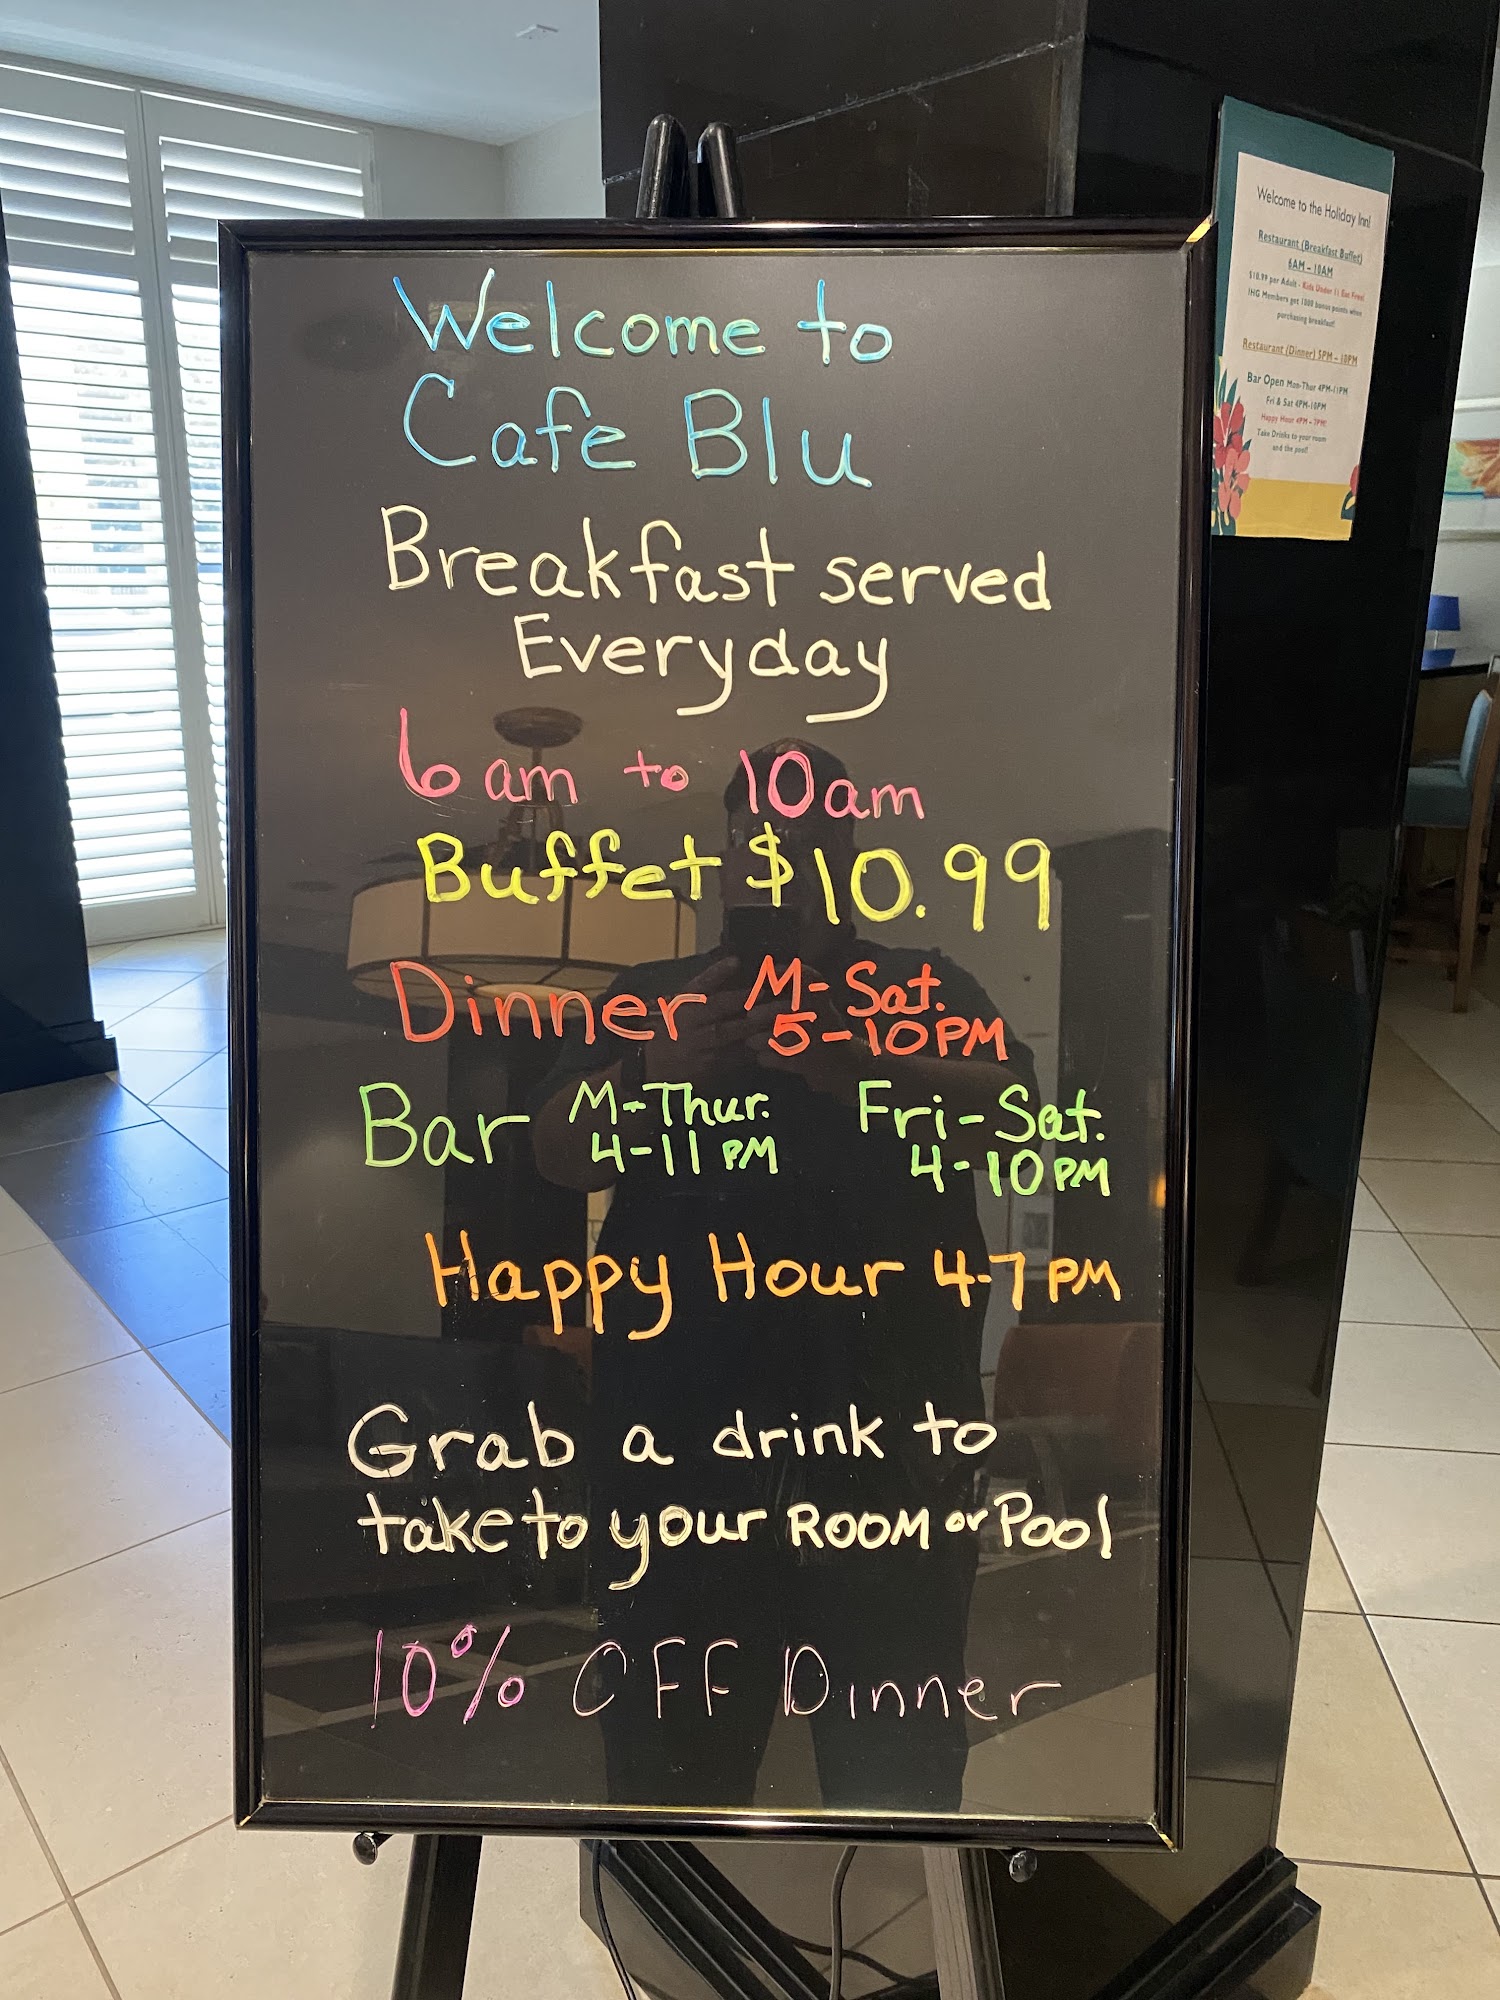 Welcome to
Cafe Blu
Breakfast served
Everyday
6am to 10am
Buffet $10.99
Dinner M-Sat.
5-10PM
Bar M-Thur. Fri-Sat.
4-11PM 4-10PM
Happy Hour 4-7PM
Grab a drink to
take to your ROOM or POOl
10% OFF Dinner
Welcome to the Holiday Inn!
Restaurant (Breakfast Buffet)
6AM – 10AM
$10.99 per Adult - Kids Under 11 Eat Free!
IHG Members get 1000 bonus points when
purchasing breakfast!
Restaurant (Dinner) 5PM – 10PM
Bar Open Mon-Thur 4PM-11PM
Fri & Sat 4PM-10PM
Happy Hour 4PM – 7PM!
Take Drinks to your room
and the pool!